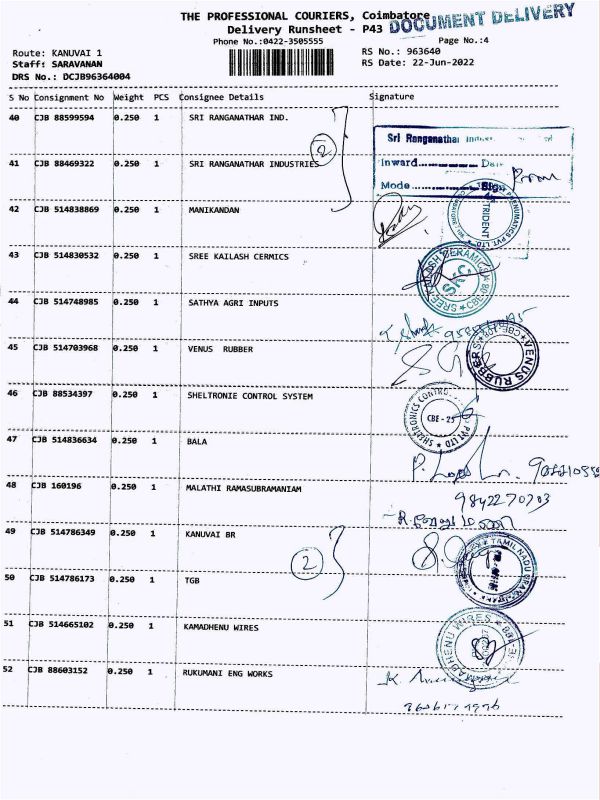 THE PROFESSIONAL COURIERS, Coimbatore
DOCUMENT DELIVERY
Delivery Runsheet - P43
Phone No.:0422-3505555
Page No.:4
Route: KANUVAI 1
RS No.: 963640
Staff: SARAVANAN
RS Date: 22-Jun-2022
DRS No.: DCJB96364004
S No Consignment No Weight PCS Consignee Details Signature
40 CJB 88599594 0.250 1 SRI RANGANATHAR IND.
2
Sri Ranganathar
41 CJB 88469322 0.250 1 SRI RANGANATHAR INDUSTRIES
Inward
Mode
42 CJB 514838869 0.250 1 MANIKANDAN
TRIDENT PVT LTD
43 CJB 514830532 0.250 1 SREE KAILASH CERMICS
SREE KAILASH CERAMICS SKC
44 CJB 514748985 0.250 1 SATHYA AGRI INPUTS
45 CJB 514703968 0.250 1 VENUS RUBBER
VENUS RUBBERS
46 CJB 88534397 0.250 1 SHELTRONIE CONTROL SYSTEM
CBE - 25 PVT LTD
47 CJB 514836634 0.250 1 BALA
48 CJB 160196 0.250 1 MALATHI RAMASUBRAMANIAM
9842270703
49 CJB 514786349 0.250 1 KANUVAI BR
2
TAMIL NADU
50 CJB 514786173 0.250 1 TGB
51 CJB 514665102 0.250 1 KAMADHENU WIRES
KAMADHENU WIRES
52 CJB 88603152 0.250 1 RUKUMANI ENG WORKS